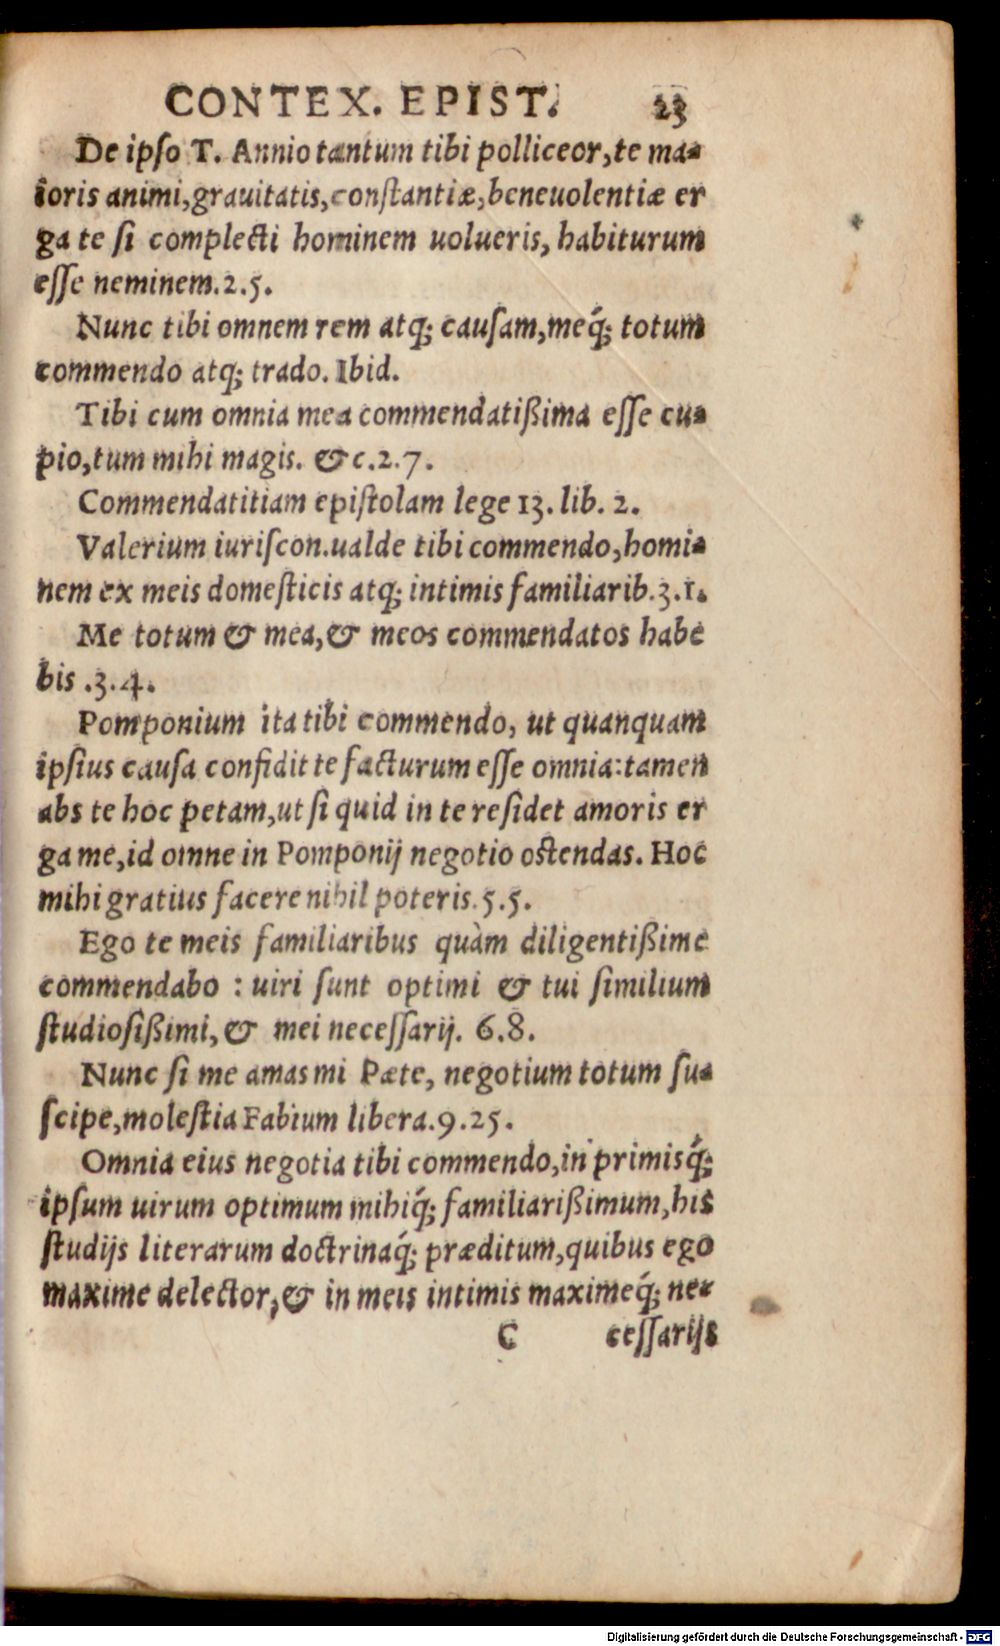 CONTEX. EPIST. 23
De ipso T. Annio tantum tibi polliceor, te ma-
ioris animi, grauitatis, constantiæ, beneuolentiæ er
ga te si complecti hominem uolueris, habiturum
esse neminem. 2.5.
Nunc tibi omnem rem atq; causam, meq́; totum
commendo atq; trado. Ibid.
Tibi cum omnia mea commendatißima esse cu-
pio, tum mihi magis. &c. 2.7.
Commendatitiam epistolam lege 13. lib. 2.
Valerium iuriscon. ualde tibi commendo, homi-
nem ex meis domesticis atq; intimis familiarib. 3.1.
Me totum & mea, & meos commendatos habe
bis .3.4.
Pomponium ita tibi commendo, ut quanquam
ipsius causa confidit te facturum esse omnia: tamen
abs te hoc petam, ut si quid in te residet amoris er
ga me, id omne in Pomponij negotio ostendas. Hoc
mihi gratius facere nihil poteris. 5.5.
Ego te meis familiaribus quàm diligentißime
commendabo : uiri sunt optimi & tui similium
studiosißimi, & mei necessarij. 6.8.
Nunc si me amas mi Pæte, negotium totum su-
scipe, molestia Fabium libera. 9.25.
Omnia eius negotia tibi commendo, in primisq́;
ipsum uirum optimum mihiq́; familiarißimum, his
studijs literarum doctrinaq́; præditum, quibus ego
maxime delector, & in meis intimis maximeq́; ne-
C cessarijs
Digitalisierung gefördert durch die Deutsche Forschungsgemeinschaft - DFG